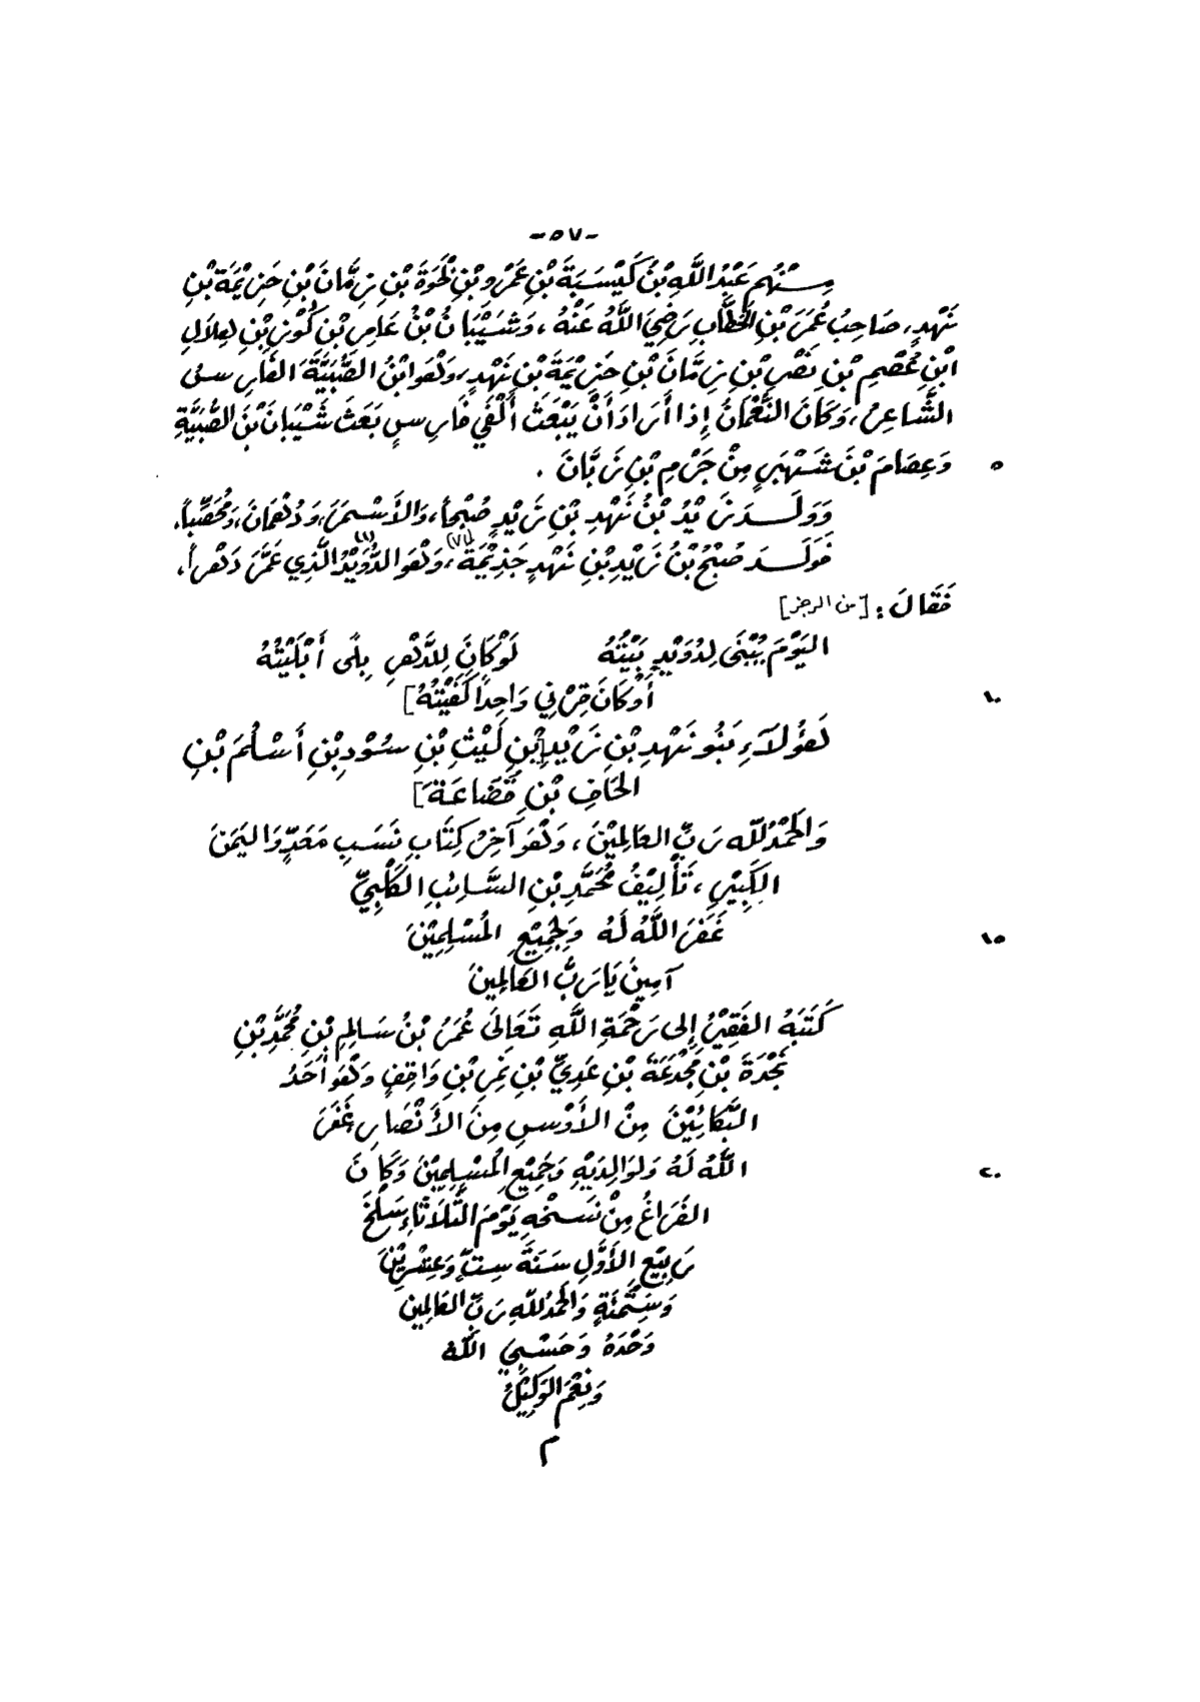 -٥٧-
مِنْهُم عَبْدُ اللَّهِ بْنُ كَيْسَبَةَ بْنِ عَمْرِو بْنِ نَحْوَةَ بْنِ زِمَّانَ بْنِ حَزِيْمَةَ بْنِ
نَهْدٍ، صَاحِبُ عُمَرَ بْنِ الخَطَّابِ رَضِيَ اللَّهُ عَنْهُ، وَشَيْبَانُ بْنُ عَامِرِ بْنِ كُوْزِ بْنِ هِلاَلِ
ابْنِ عُصْمِ بْنِ نَصْرِ بْنِ زِمَّانَ بْنِ حَزِيْمَةَ بْنِ نَهْدٍ، وَهُوَ ابْنُ الصُّبَيَّةَ الفَارِسيُّ
الشَّاعِرُ، وَكَانَ النُّعْمَانُ إِذَا أَرَادَ أَنْ يَبْعَثَ أَلْفَيْ فَارِسٍ بَعَثَ شَيْبَانَ بْنَ الصُّبَيَّةِ
٥ وَعِصَامَ بْنَ شَهْبَرٍ مِنْ جَرْمِ بْنِ رَبَّانَ .
وَوَلَدَ زَيْدُ بْنُ نَهْدِ بْنِ زَيْدٍ صُبْحاً، وَالأَسْمَرَ، وَدُهْمَانَ، وَمُحَصِّباً.
فَوَلَدَ صُبْحُ بْنُ زَيْدِ بْنِ نَهْدٍ جَذِيْمَةَ (٧)، وَهُوَ الدُّوَيْدُ (٨) الَّذِي عَمَّرَ دَهْراً،
فَقَالَ : [من الرجز]
اليَوْمَ يُبْنَى لِدُوَيْدٍ بَيْتُهُ لَوْ كَانَ لِلدَّهْرِ بِلًى أَبْلَيْتُهُ
١٠ أَوْ كَانَ قِرْنِي وَاحِدًا كَفَيْتُهُ]
هَؤُلاَءِ بَنُو نَهْدِ بْنِ زَيْدِ [بْنِ لَيْثِ بْنِ سُوْدِ بْنِ أَسْلُمَ بْنِ
الحَافِ بْنِ قُضَاعَةَ]
وَالحَمْدُ لله رَبِّ العَالَمِيْنَ، وَهُوَ آخِرُ كِتَابِ نَسَبِ مَعَدٍّ وَاليَمَنَ
الكَبِيْرِ، تَأْلِيْفُ مُحَمَّدِ بْنِ السَّائِبِ الكَلْبِيِّ
١٥ غَفَرَ اللَّهُ لَهُ وَلِجَمِيْعِ المُسْلِمِيْنَ
آمِينَ يَا رَبَّ العَالَمِينَ
كَتَبَهُ الفَقِيْرُ إِلى رَحْمَةِ اللَّهِ تَعَالَى عُمَرُ بْنُ سَالِمِ بْنِ مُحَمَّدِ بْنِ
نَجْدَةَ بْنِ مَجْدَعَةَ بْنِ عَدِيِّ بْنِ نَمِرِ بْنِ وَاقِفٍ وَهُوَ أَحَدُ
البَكَّائِيْنَ مِنْ الأَوْسِ مِنَ الأَنْصَارِ غَفَرَ
٢٠ اللَّهُ لَهُ وَلِوَالِدَيْهِ وَجَمِيْعِ المُسْلِمِيْنَ وَكَانَ
الفَرَاغُ مِنْ نَسْخِهِ يَوْمَ الثَّلاَثَاءِ سَلْخَ
رَبِيْعِ الأَوَّلِ سَنَةَ سِتٍّ وَعِشْرِيْنَ
وَسِتَّمِئَةٍ وَالحَمْدُ للهِ رَبِّ العَالَمِين
وَحْدَهُ وَحَسْبِيَ اللَّهُ
وَنِعْمَ الوَكِيْلُ
م